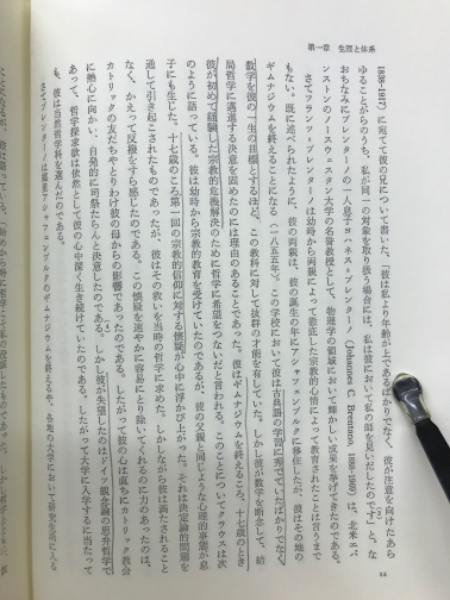 第一章　生涯と体系
22
1838-1917)に宛てて彼の兄について書いた、「彼は私より年齢が上であるばかりでなく、彼が注意を向けたあら
ゆることがらのうち、私が同一の対象を取り扱う場合には、私は彼において私の師を見いだしたのです」と。な
おちなみにブレンターノの一人息子ヨハネス＝ブレンターノ(Johannes C. Brentano, 1888-1969)は、北米エバ
ンストンのノースウェスタン大学の名誉教授として、物理学の領域において輝かしい成果を挙げてきたのである。
さてフランツ＝ブレンターノは幼時から両親によって徹底した宗教的心情によって教育されたことは言うまで
もない。既に述べられたように、彼の両親は、彼の誕生の年にアシャフェンブルクに移住したが、彼はその地の
ギムナジウムを終えることになる(一八五五年)。この学校において彼は古典語の学習に秀でていたばかりでなく、
数学を彼の一生の目標とするほど、この教科に対して抜群の才能を有していた。しかし彼が数学を断念して、結
局哲学に邁進する決意を固めたのには理由のあることであった。彼はギムナジウムを終えるころ、十七歳のとき
彼が初めて経験した宗教的危機解決のために哲学に希望をつないだと言われる。このことについてクラウスは次
のように語っている。彼は幼時から宗教的教育を受けていたのであるが、彼の父親と同じような心理的事態が息
子にも生じた。十七歳のころ第一回の宗教的信仰に対する懐疑が心中に浮かび上がった。それは決定論的問題を
通して引き起こされたものであったが、彼はその救いを当時の哲学に求めた。しかしながら彼は満たされること
なく、かえって反撥をすら感じたのである。この懐疑を速やかに容易にとり除いてくれるのに力のあったのは、
カトリックの友だちやとりわけ彼の母からの影響であったのである。したがって彼の心は直ちにカトリック教会
に熱心に向かい、自発的に司祭たらんと決意したのである。(4)しかし彼が失望したのはドイツ観念論の思弁哲学で
あって、哲学探求欲は依然として彼の心中深く生き続けていたのである。したがって大学に入学するに当たって
も、彼は当然哲学科を選んだのである。
さてブレンターノは郷里アシャフェンブルクのギムナジウムを終えるや、各地の大学において研究生活に入る